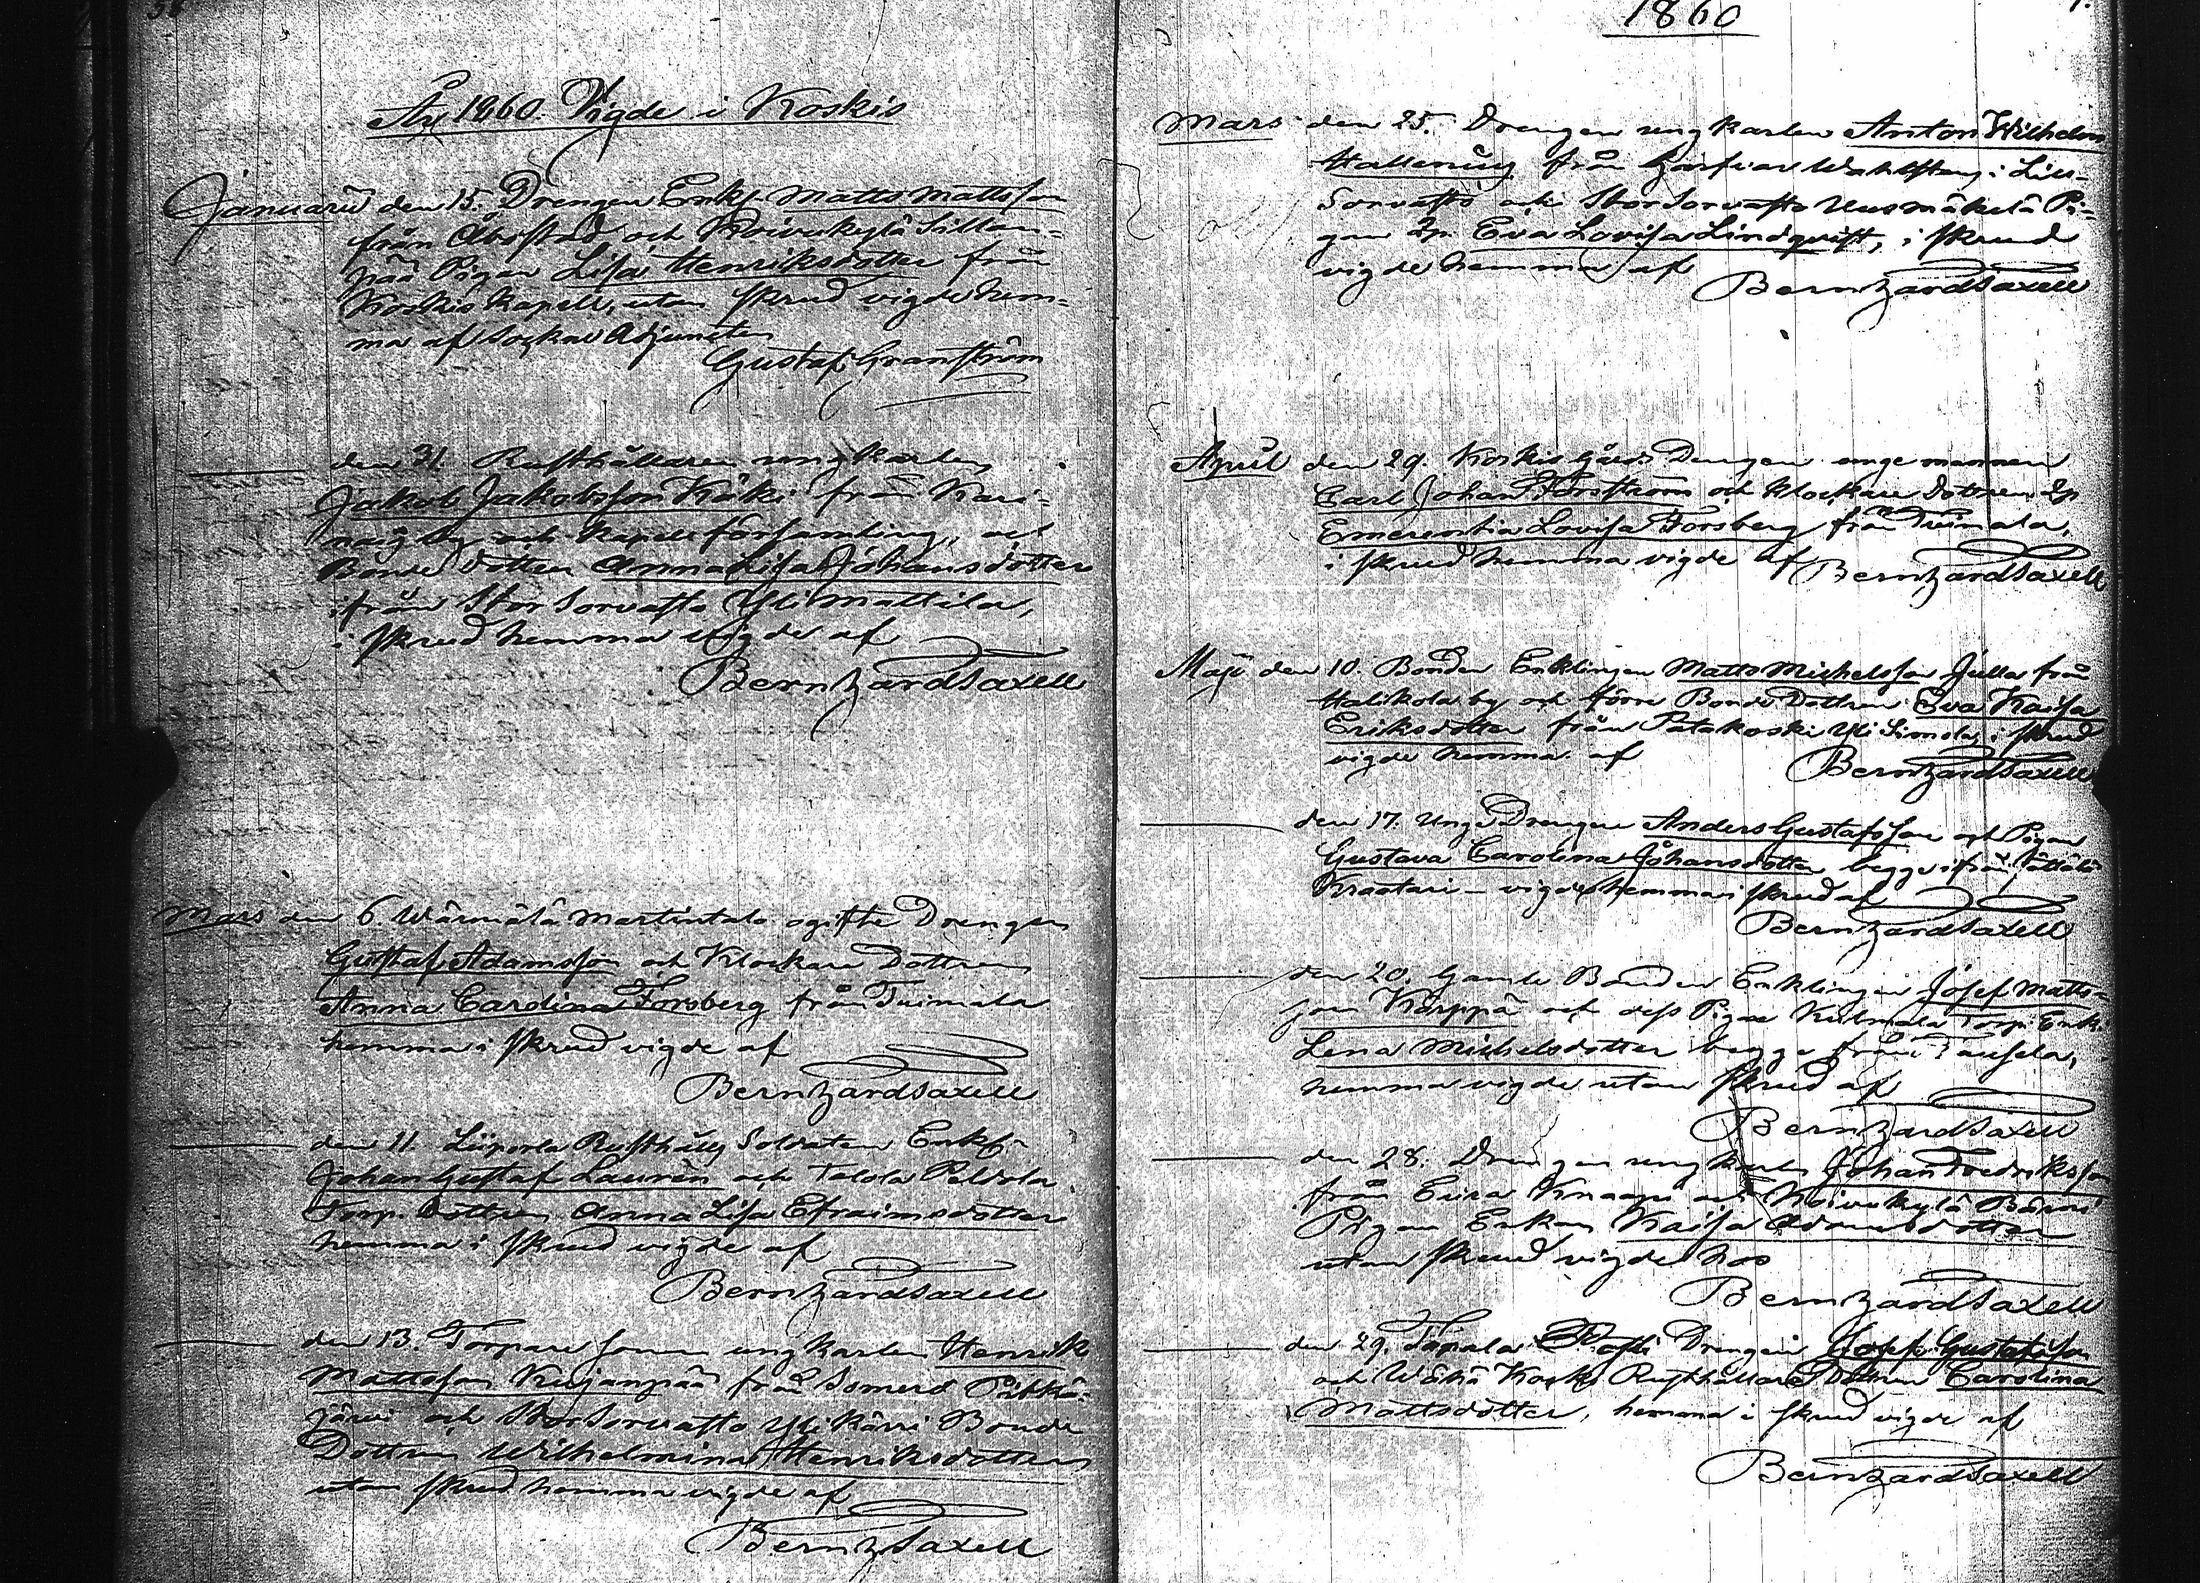 År 1860. Vigde i Koskis
Januarii den 15. Drengen Enkl. Matts Mattsson
från Åbo stad och Koivukylä Sillan=
pää Pigan Lisa Henriksdotter från
Koskis Kapell, utan skrud vigde hem=
ma af Sockne Adjuncten
Gustaf Granström
den 31. Rusthållaren ungkarlen
Jakob Jakobsson Käki från Kari=
nais by och Kapellförsamling, och
Bonde dottren Anna Lisa Johansdotter
ifrån Stor Sorvasto Yli Mattila,
i skrud hemma vigde af
Bernhard Saxell
Mars den 6. Wärmälä Martintalo ogifte Drengen
Gustaf Adamsson och Klockare Dottren
Anna Carolina Forsberg från Tuimala
hemma i skrud vigde af
Bernhard Saxell
den 11. Liiporla Rusthålls Soldaten Enkl.
Johan Gustaf Laurén och Talola Peldola
Torp. dottren Anna Lisa Efraimsdotter
hemma i skrud vigde af
Bernhard Saxell
den 13. Torpare sonen ungkarlen Henrik
Mattsson Kujanpää från Somero Pitkä-
järvi och Stor Sorvasto Yli Kärri Bonde
Dottren Wilhelmina Henriksdotter
utan skrud hemma vigde af
Bernh. Saxell
1860
Mars den 25. Drengen ungkarlen Anton Wilhelm
från i Lill=
Sorvasto och Stor Sorvasto Uusmäkelä Pi=
gan Jp. Eva Lovisa Lindqvist, i skrud
vigde hemma af
Bernhard Saxell
April den 29. Koskis Gårds Drengen unge mannen
Carl Johan Forsström och Klockare dottren Jp.
Emerentia Lovisa Forsberg från Tuimala,
i skrud hemma vigde af Bernhard Saxell
Maji den 10. Bonden Enklingen Matts Michelsson Julla från
Halikola by och förre Bonde Dottren Eva Kaisa
Eriksdotter från Patakoski Yli Simola, i skrud
vigde hemma af
Bernhard Saxell
den 17. Unge Drengen Anders Gustafsson och Pigan
Gustava Carolina Johansdotter begge ifrån
Kraatari – vigde hemma i skrud af
Bernhard Saxell
den 20. Gamle Bonden Enklingen Josef Matts=
son Korppä och dess Pigan Kulmala Torp. Enk.
Lena Michelsdotter begge från Tausela,
hemma vigde utan skrud af
Bernhard Saxell
den 28. Drengen ungkarlen Johan Fredriksson
från Eura Knaapi och Koivukylä
Pigan Enkan Kaisa Adamsdotter
utan skrud vigde hos
Bernhard Saxell
den 29. Tapala Drengen Josef Gustafsson
och Wähä Koski Rusthållare Dottren Carolina
Mattsdotter, hemma i skrud vigde af
Bernhard Saxell